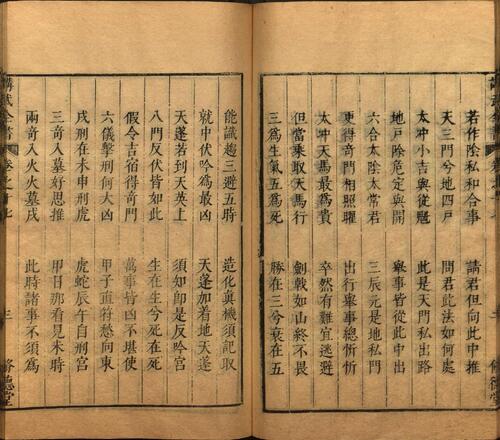 若作陰私和合事 請君但向此中推
天三門兮地四戶 問君此法如何處
太冲小吉與從魁 此是天門私出路
地戶除危定與開 舉事皆從此中出
六合太陰太常君 三辰元是地私門
更得奇門相照曜 出行舉事總忻忻
太冲天馬最為貴 卒然有難宜逃避
但當乗取天馬行 劍戟如山終不畏
三為生氣五為死 勝在三兮衰在五
能識趨三避五時 造化真機須記取
就中伏吟為最凶 天蓬加着地天蓬
天蓬若到天英上 須知即是反吟宮
八門反伏皆如此 生在生兮死在死
假令吉宿得奇門 萬事皆凶不堪使
六儀擊刑何大凶 甲子直符愁向東
戌刑在未申刑虎 虎蛇辰午自刑宮
三奇入墓好思推 甲日那看見未時
兩奇入火火墓戌 此時諸事不須為
全書 卷之十七 三 修德堂